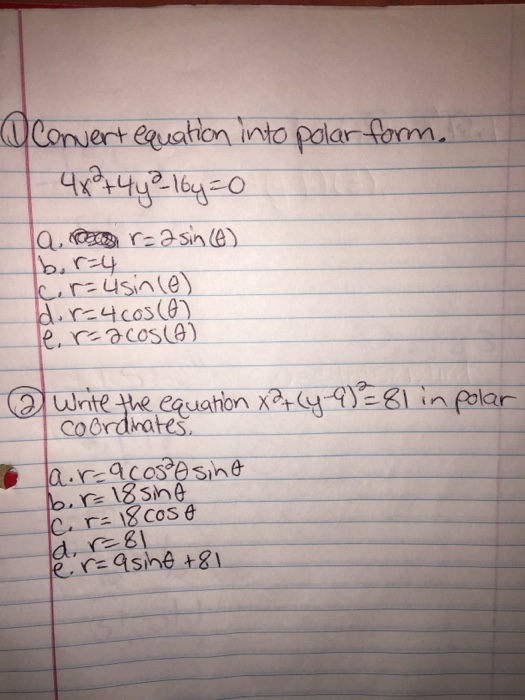 ① Convert equation into polar form.
4x²+4y²-16y=0
a. r=2sin(θ)
b. r=4
c. r=4sin(θ)
d. r=4cos(θ)
e. r=2cos(θ)
② Write the equation x²+(y-9)²=81 in polar
coordinates.
a. r=9cos²θsinθ
b. r=18sinθ
c. r=18cosθ
d. r=81
e. r=9sinθ+81